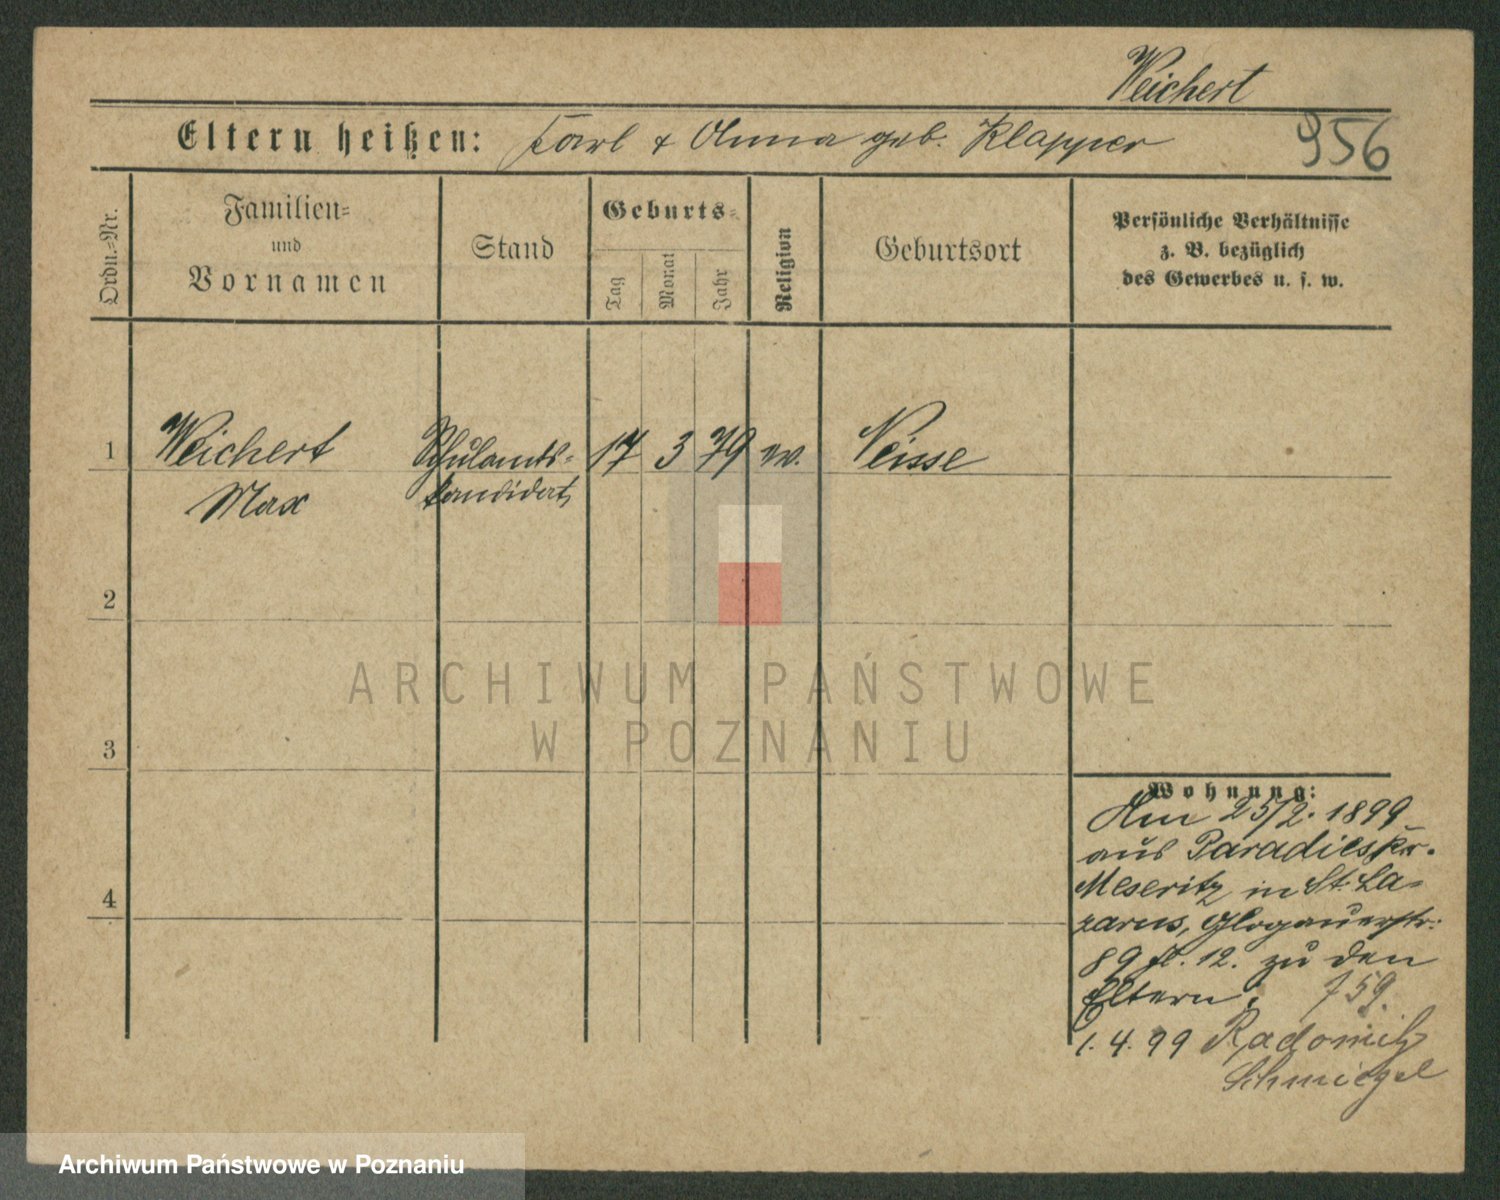 Weichert
Eltern heißen: Karl & Anna geb. Klapper
956
Ordn.=Nr.
Familien=
und
Vornamen
Stand
Geburts=
Tag
Monat
Jahr
Religion
Geburtsort
Persönliche Verhältnisse
z. B. bezüglich
des Gewerbes u. s. w.
1 Weichert Schulamts- 17 3 79 Neisse
Max kandidat
2
3
4
ARCHIWUM PAŃSTWOWE
W POZNANIU
Wohnung:
Am 25/2. 1899
aus Paradies Kr.
Meseritz in St. La-
zarus, Glogauerstr.
89 12. zu den
Eltern. 759.
1. 4. 99 Radomitz
Schmiegel
Archiwum Państwowe w Poznaniu